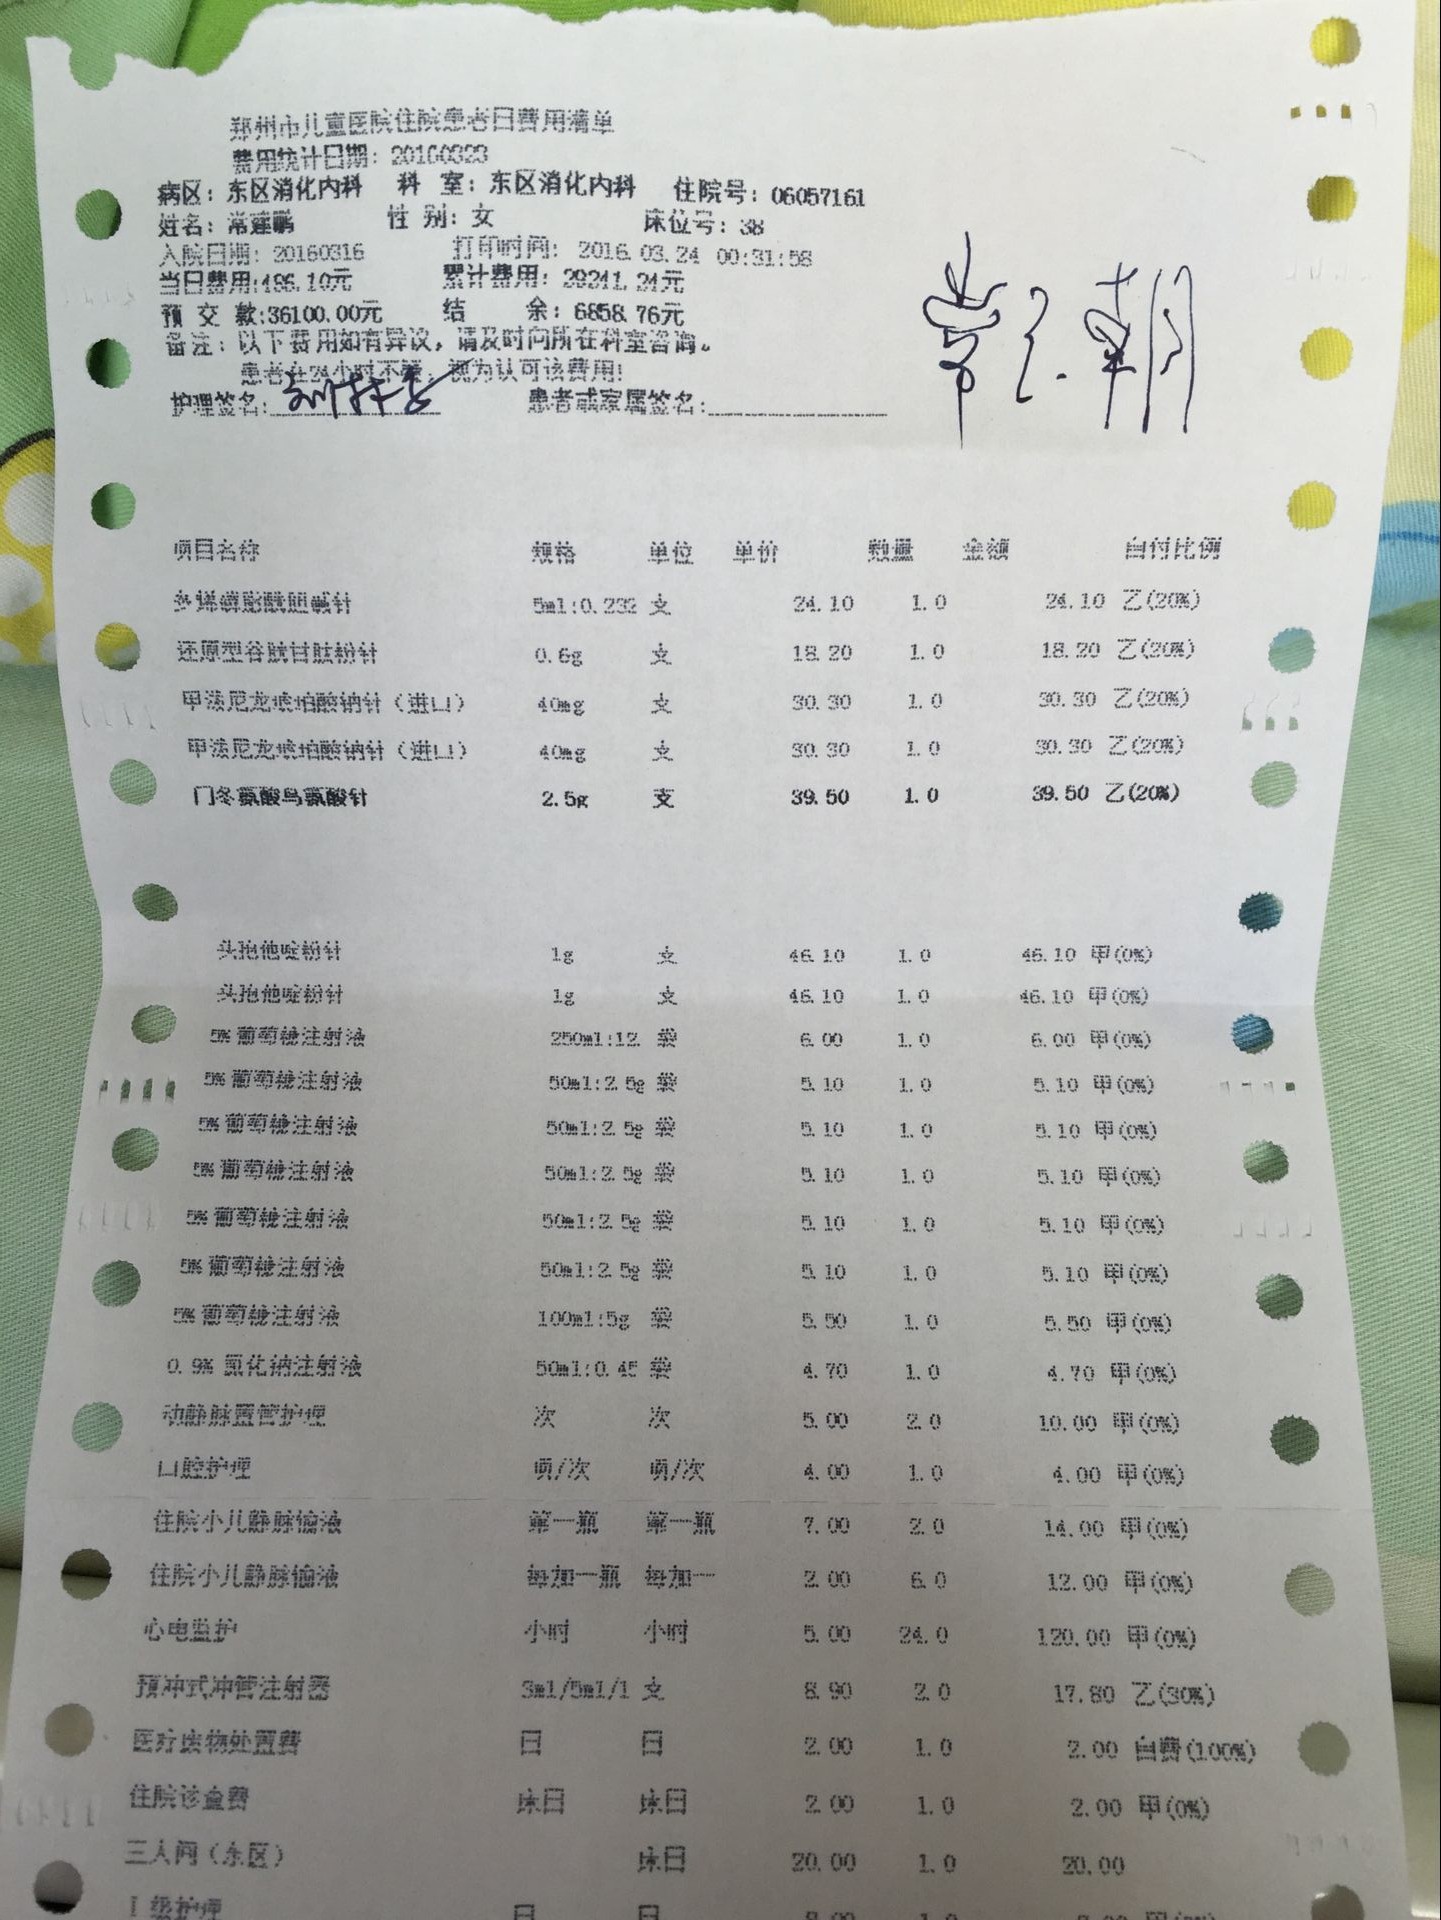 郑州市儿童医院住院患者日费用清单
费用统计日期：20160323
病区：东区消化内科 科 室：东区消化内科 住院号：06057161
姓名：常 鹏 性 别：女 床位号：38
入院日期：20160316 打印时间：2016.03.24 00:31:58
当日费用:486.10元 累计费用：29241.24元
预 交 款:36100.00元 结 余：6858.76元
备注：以下费用如有异议，请及时向所在科室咨询。
患者在24小时不疑，视为认可该费用!
护理签名: 患者或家属签名:
项目名称 规格 单位 单价 数量 金额 自付比例
多烯磷脂酰胆碱针 5ml:0.232 支 24.10 1.0 24.10 乙(20%)
还原型谷胱甘肽粉针 0.6g 支 18.20 1.0 18.20 乙(20%)
甲泼尼龙琥珀酸钠针（进口） 40mg 支 30.30 1.0 30.30 乙(20%)
甲泼尼龙琥珀酸钠针（进口） 40mg 支 30.30 1.0 30.30 乙(20%)
门冬氨酸鸟氨酸针 2.5g 支 39.50 1.0 39.50 乙(20%)
头孢他啶粉针 1g 支 46.10 1.0 46.10 甲(0%)
头孢他啶粉针 1g 支 46.10 1.0 46.10 甲(0%)
5%葡萄糖注射液 250ml:12 袋 6.00 1.0 6.00 甲(0%)
5%葡萄糖注射液 50ml:2.5g 袋 5.10 1.0 5.10 甲(0%)
5%葡萄糖注射液 50ml:2.5g 袋 5.10 1.0 5.10 甲(0%)
5%葡萄糖注射液 50ml:2.5g 袋 5.10 1.0 5.10 甲(0%)
5%葡萄糖注射液 50ml:2.5g 袋 5.10 1.0 5.10 甲(0%)
5%葡萄糖注射液 50ml:2.5g 袋 5.10 1.0 5.10 甲(0%)
5%葡萄糖注射液 100ml:5g 袋 5.50 1.0 5.50 甲(0%)
0.9%氯化钠注射液 50ml:0.45 袋 4.70 1.0 4.70 甲(0%)
动静脉置管护理 次 次 5.00 2.0 10.00 甲(0%)
口腔护理 项/次 项/次 4.00 1.0 4.00 甲(0%)
住院小儿静脉输液 第一瓶 第一瓶 7.00 2.0 14.00 甲(0%)
住院小儿静脉输液 每加一瓶 每加一 2.00 6.0 12.00 甲(0%)
心电监护 小时 小时 5.00 24.0 120.00 甲(0%)
预冲式冲管注射器 3ml/5ml/1 支 8.90 2.0 17.80 乙(30%)
医疗废物处置费 日 日 2.00 1.0 2.00 自费(100%)
住院诊查费 床日 床日 2.00 1.0 2.00 甲(0%)
三人间（东区） 床日 20.00 1.0 20.00
I级护理 日 日